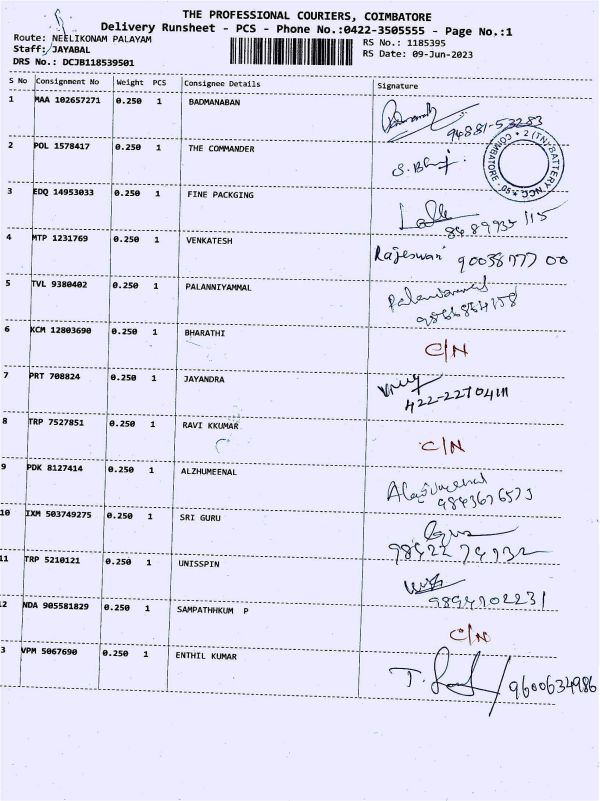 THE PROFESSIONAL COURIERS, COIMBATORE
Delivery Runsheet - PCS - Phone No.:0422-3505555 - Page No.:1
Route: NEELIKONAM PALAYAM
RS No.: 1185395
Staff: JAYABAL
RS Date: 09-Jun-2023
DRS No.: DCJB118539501
S No Consignment No Weight PCS Consignee Details Signature
1 MAA 102657271 0.250 1 BADMANABAN
94881-53283
2 POL 1578417 0.250 1 THE COMMANDER
2 (TN) BATTERY NCC * COIMBATORE
3 EDQ 14953033 0.250 1 FINE PACKGING
4 MTP 1231769 0.250 1 VENKATESH Rajeswari
5 TVL 9380402 0.250 1 PALANNIYAMMAL
6 KCM 12803690 0.250 1 BHARATHI C/N
7 PRT 708824 0.250 1 JAYANDRA
8 TRP 7527851 0.250 1 RAVI KKUMAR C/N
9 PDK 8127414 0.250 1 ALZHUMEENAL
9843676573
10 IXM 503749275 0.250 1 SRI GURU
11 TRP 5210121 0.250 1 UNISSPIN
9894702231
2 NDA 905581829 0.250 1 SAMPATHHKUM P C/N
3 VPM 5067690 0.250 1 ENTHIL KUMAR
9600634986